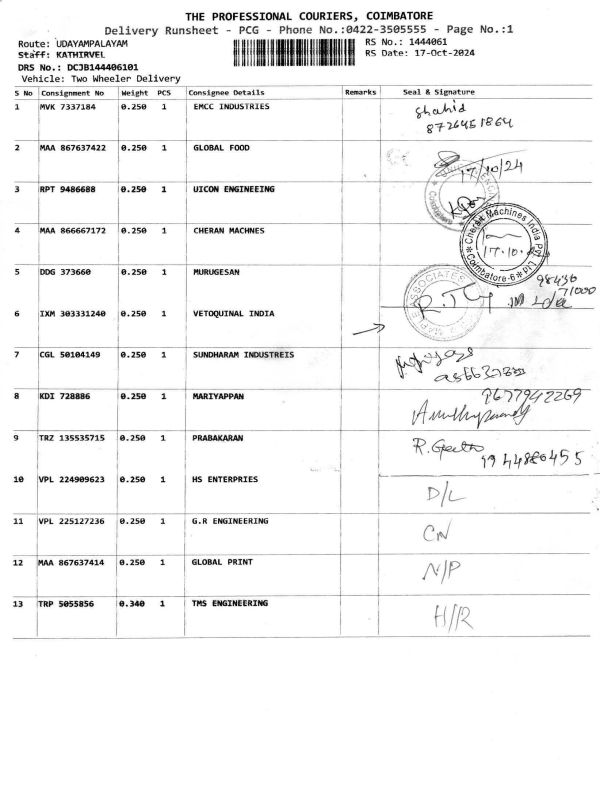 THE PROFESSIONAL COURIERS, COIMBATORE
Delivery Runsheet - PCG - Phone No.:0422-3505555 - Page No.:1
Route: UDAYAMPALAYAM RS No.: 1444061
Staff: KATHIRVEL RS Date: 17-Oct-2024
DRS No.: DCJB144406101
Vehicle: Two Wheeler Delivery
S No Consignment No Weight PCS Consignee Details Remarks Seal & Signature
1 MVK 7337184 0.250 1 EMCC INDUSTRIES Shahid
8726451864
2 MAA 867637422 0.250 1 GLOBAL FOOD 17/10/24
3 RPT 9486688 0.250 1 UICON ENGINEEING
4 MAA 866667172 0.250 1 CHERAN MACHNES Cheran Machines India Pvt. Ltd. Coimbatore-6 17.10.24
5 DDG 373660 0.250 1 MURUGESAN 98430
71000
6 IXM 303331240 0.250 1 VETOQUINAL INDIA
7 CGL 50104149 0.250 1 SUNDHARAM INDUSTREIS
8 KDI 728886 0.250 1 MARIYAPPAN 9677942269
9 TRZ 135535715 0.250 1 PRABAKARAN R. Geetha
9944886455
10 VPL 224909623 0.250 1 HS ENTERPRIES D/L
11 VPL 225127236 0.250 1 G.R ENGINEERING CN
12 MAA 867637414 0.250 1 GLOBAL PRINT N/P
13 TRP 5055856 0.340 1 TMS ENGINEERING H/R